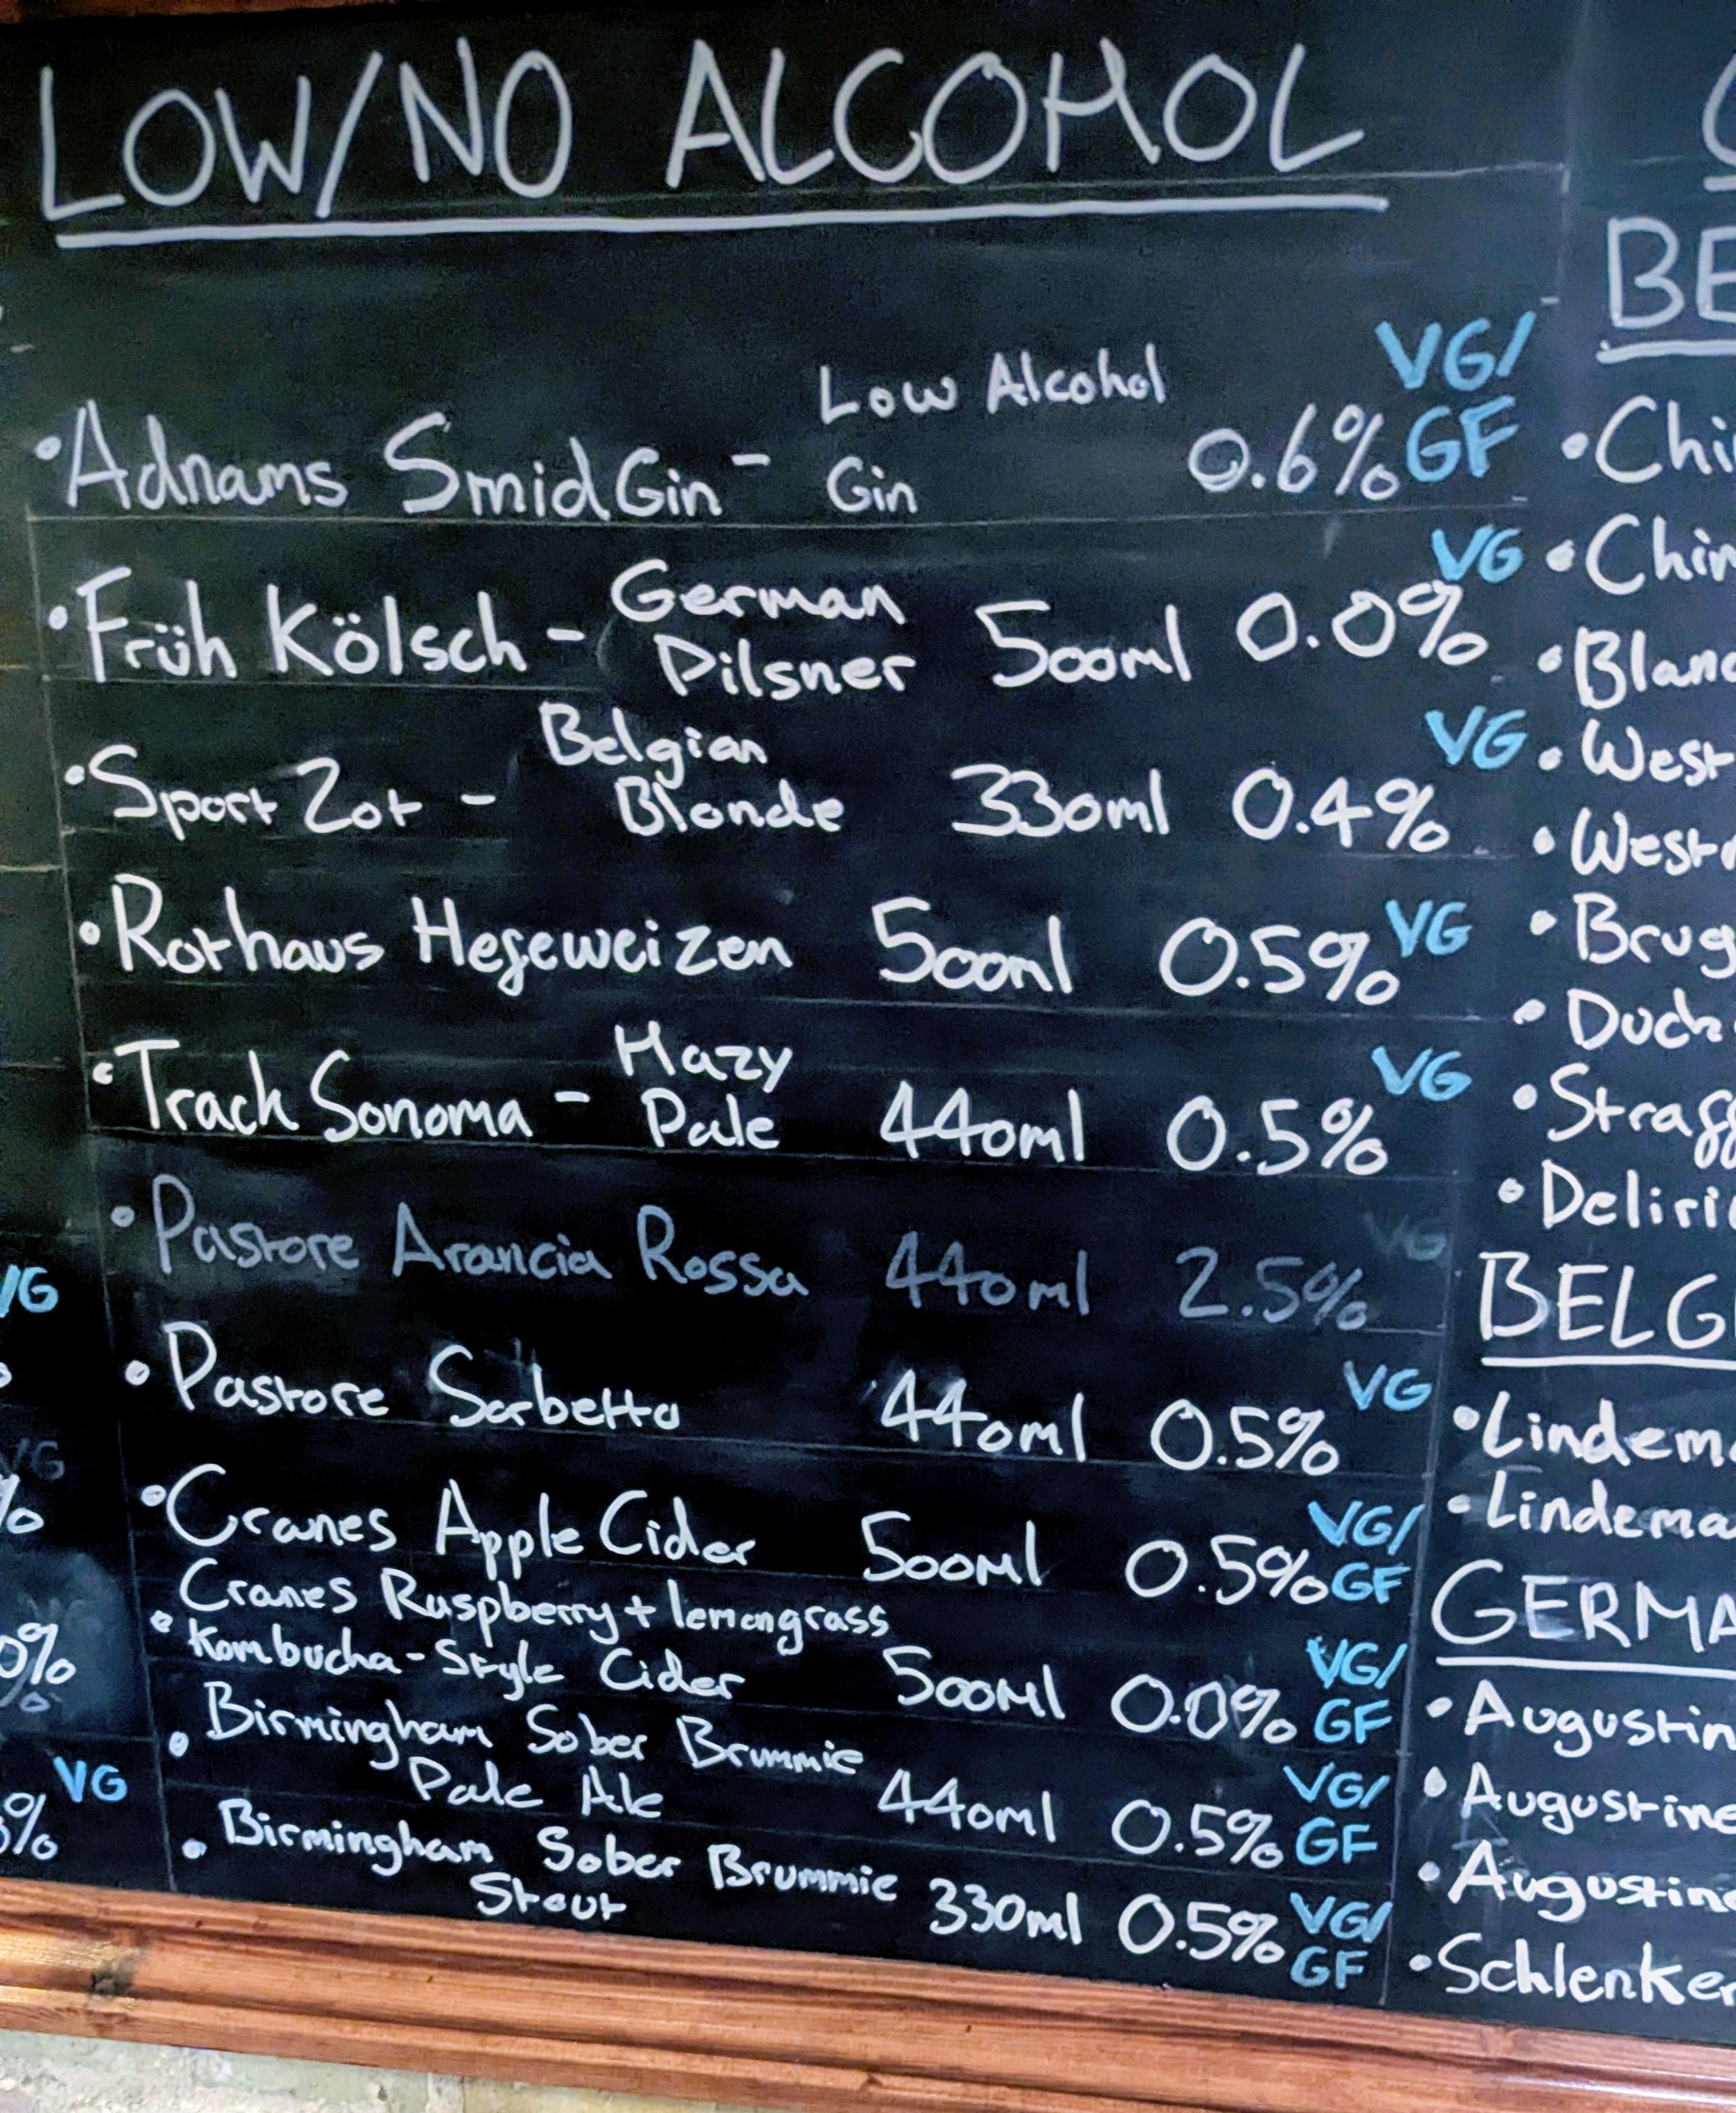 LOW/NO ALCOHOL
VG/
Low Alcohol
•Adnams SmidGin - Gin 0.6% GF
German VG
•Früh Kölsch - Pilsner 500ml 0.0%
Belgian VG
•Sport Zot - Blonde 330ml 0.4%
•Rothaus Hefeweizen 500ml 0.5% VG
Hazy VG
•Track Sonoma - Pale 440ml 0.5%
•Pastore Arancia Rossa 440ml 2.5% VG
•Pastore Sorbetto 440ml 0.5% VG
•Cranes Apple Cider 500ml 0.5% VG/
GF
Cranes Raspberry + lemongrass
•Kombucha-Style Cider 500ml 0.0% VG/
GF
•Birmingham Sober Brummie
Pale Ale 440ml 0.5% VG/
GF
•Birmingham Sober Brummie
Stout 330ml 0.5% VG/
GF
BE
•Chi
•Chim
•Blan
•West
•West
•Brug
•Duch
•Straff
•Deliri
BELG
•Lindem
•Lindema
GERMA
•Augustin
•Augustine
•Augustine
•Schlenker
VG
VG
%
0%
%
VG
%